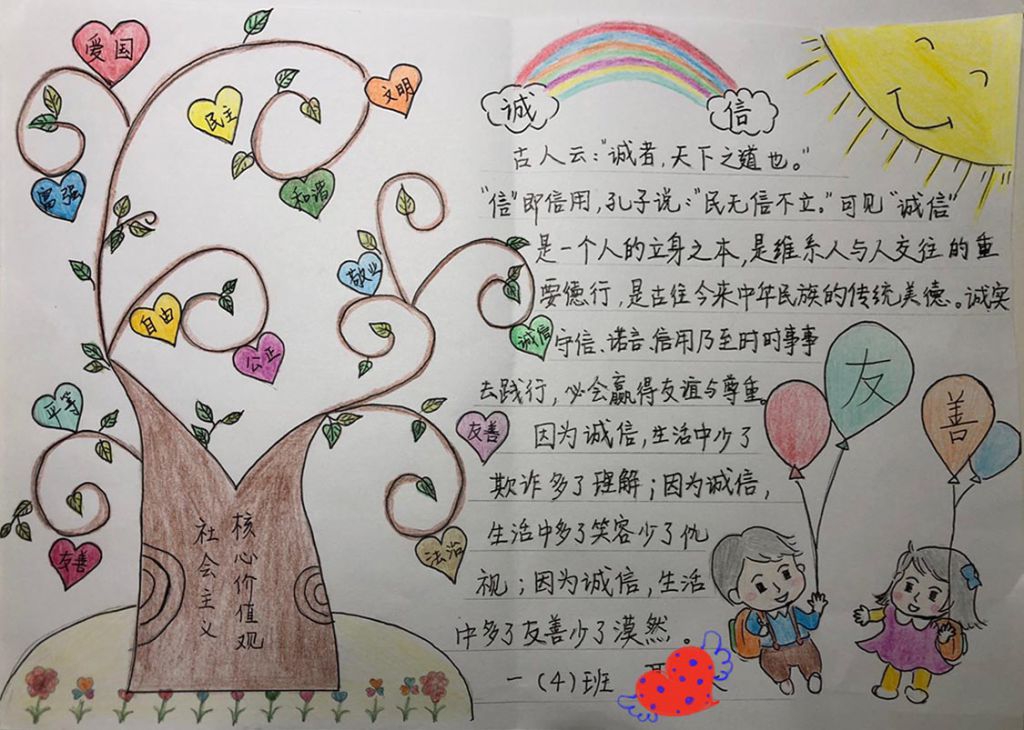 爱国
文明
民主
富强
和谐
敬业
自由
公正
诚信
平等
友善
友善
法治
社会主义
核心价值观
诚信
古人云："诚者，天下之道也。"
"信"即信用，孔子说："民无信不立。"可见"诚信"
是一个人的立身之本，是维系人与人交往的重
要德行，是古往今来中华民族的传统美德。诚实
守信、诺言、信用乃至时时事事
去践行，必会赢得友谊与尊重。
因为诚信，生活中少了
欺诈多了理解；因为诚信，
生活中多了笑容少了仇
视；因为诚信，生活
中多了友善少了漠然。
一（4）班
友
善